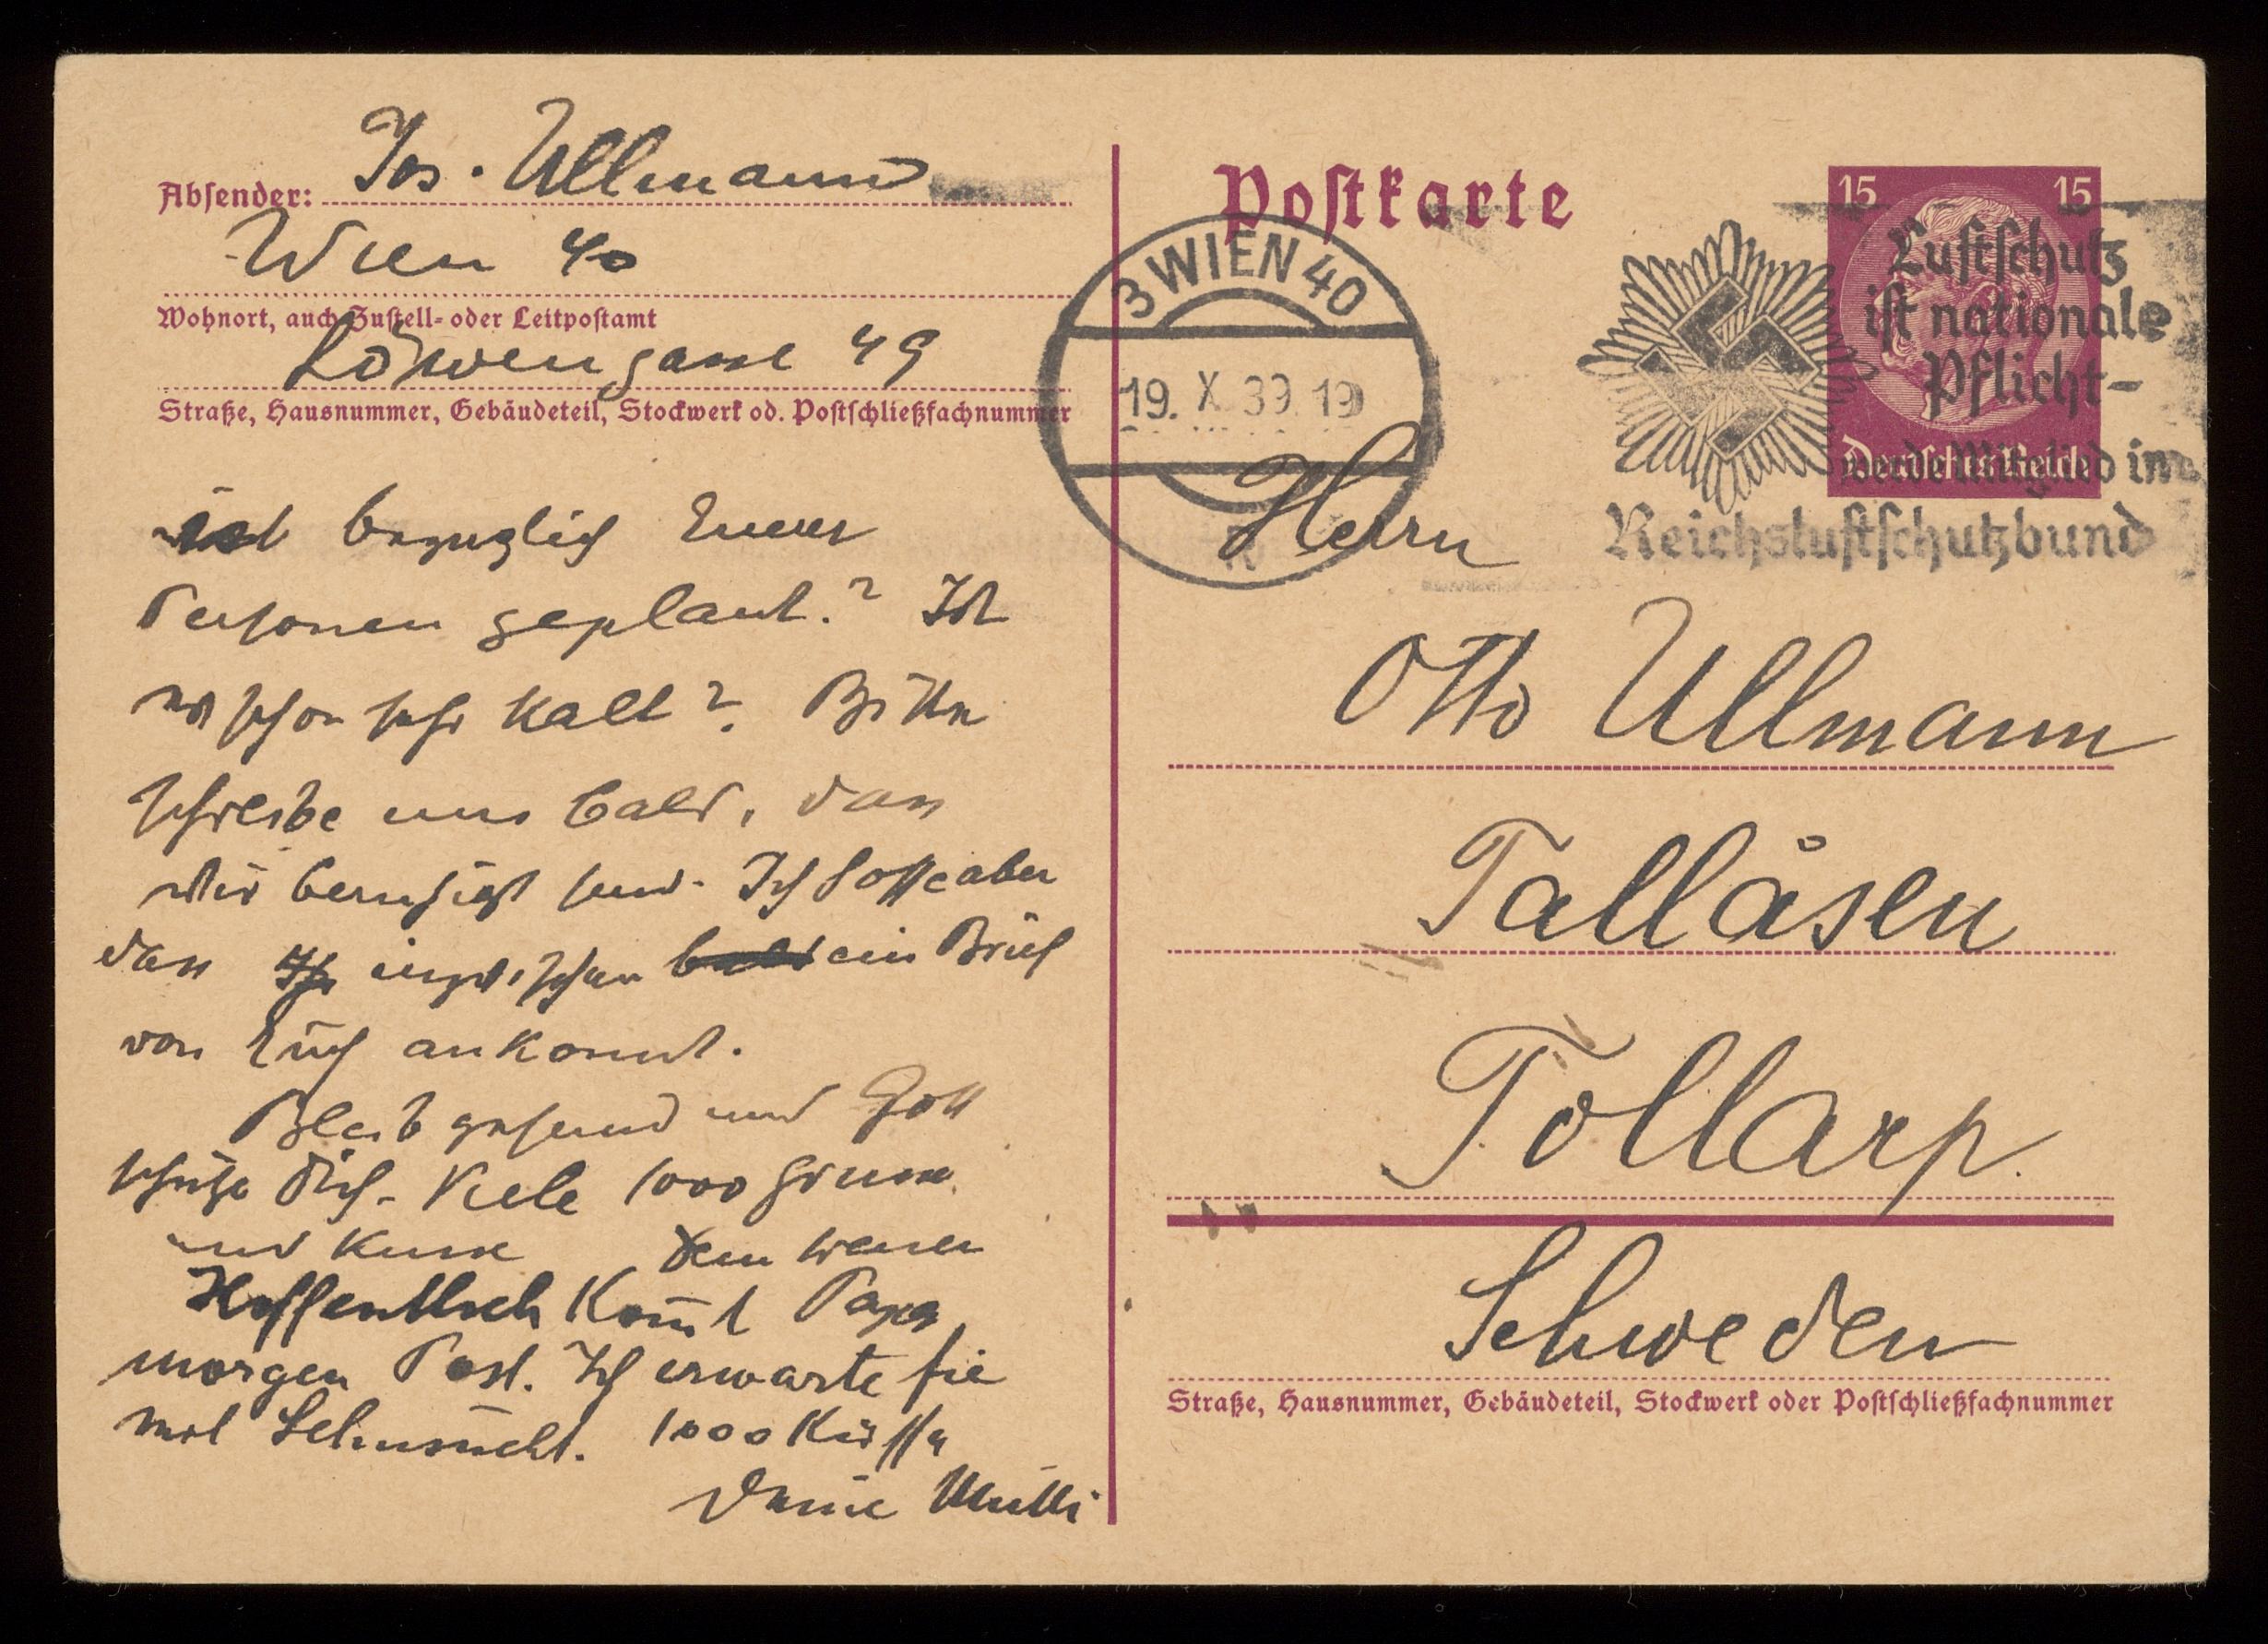 Absender: Jos. Ullmann
Wien 40
Wohnort, auch Zustell- oder Leitpostamt
Löwengasse 49
Straße, Hausnummer, Gebäudeteil, Stockwerk od. Postschließfachnummer
ist bezuglich Euerer
Personen geplant? Ist
es schon sehr kalt? Bitte
schreibe uns bald, dass
wir beruhigt sind. Ich hoffe aber
dass inzwischen ein Brief
von Euch ankommt.
Bleib gesund und Gott
schütze Dich. Viele 1000 Grüsse
und Küsse Dein
Hoffentlich kom̄t Papa
morgen Post. Ich erwarte sie
mit Sehnsucht. 1000 Küsse
Deine Mutti
Postkarte
3 WIEN 40
19. X. 39. 19
15 15
Deutsches Reich
Luftschutz
ist nationale
Pflicht-
werde Mitglied im
Reichsluftschutzbund
Herrn
Otto Ullmann
Tallåsen
Tollarp.
Schweden
Straße, Hausnummer, Gebäudeteil, Stockwerk oder Postschließfachnummer